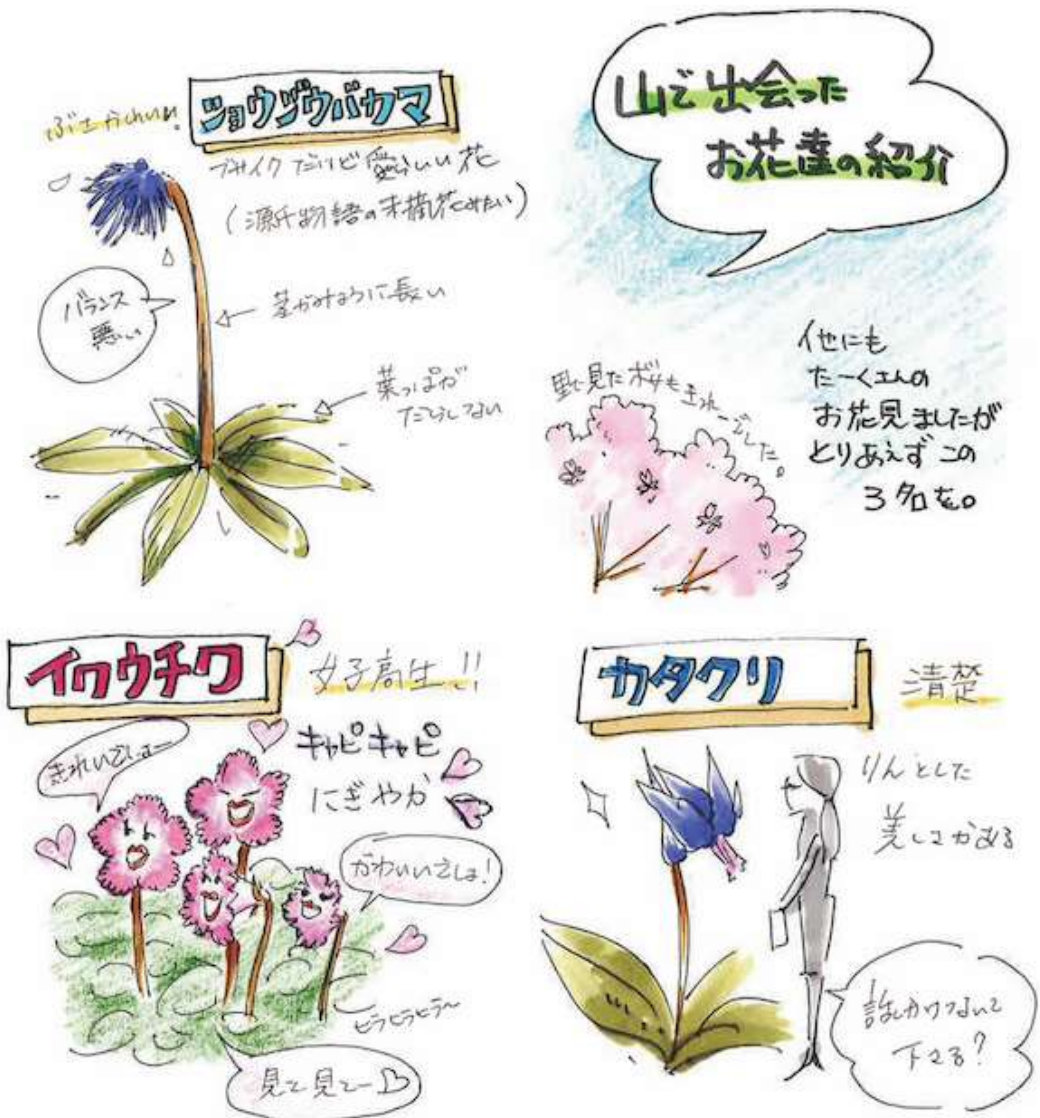 山で出会った
お花達の紹介
ショウジョウバカマ
ぶさかわいい!
ブサイクだけど愛らしい花
(源氏物語の末摘花みたい)
バランス
悪い
茎がみょうに長い
葉っぱが
だらしない
里で見た桜もきれーでした。
他にも
たーくさんの
お花見ましたが
とりあえずこの
3名を。
イワウチワ
女子高生!!
キャピキャピ
にぎやか
きれいでしょー
かわいいでしょ!
ヒラヒラヒラ〜
見て見てー
カタクリ
清楚
りんとした
美しさがある
話しかけないで
下さる?